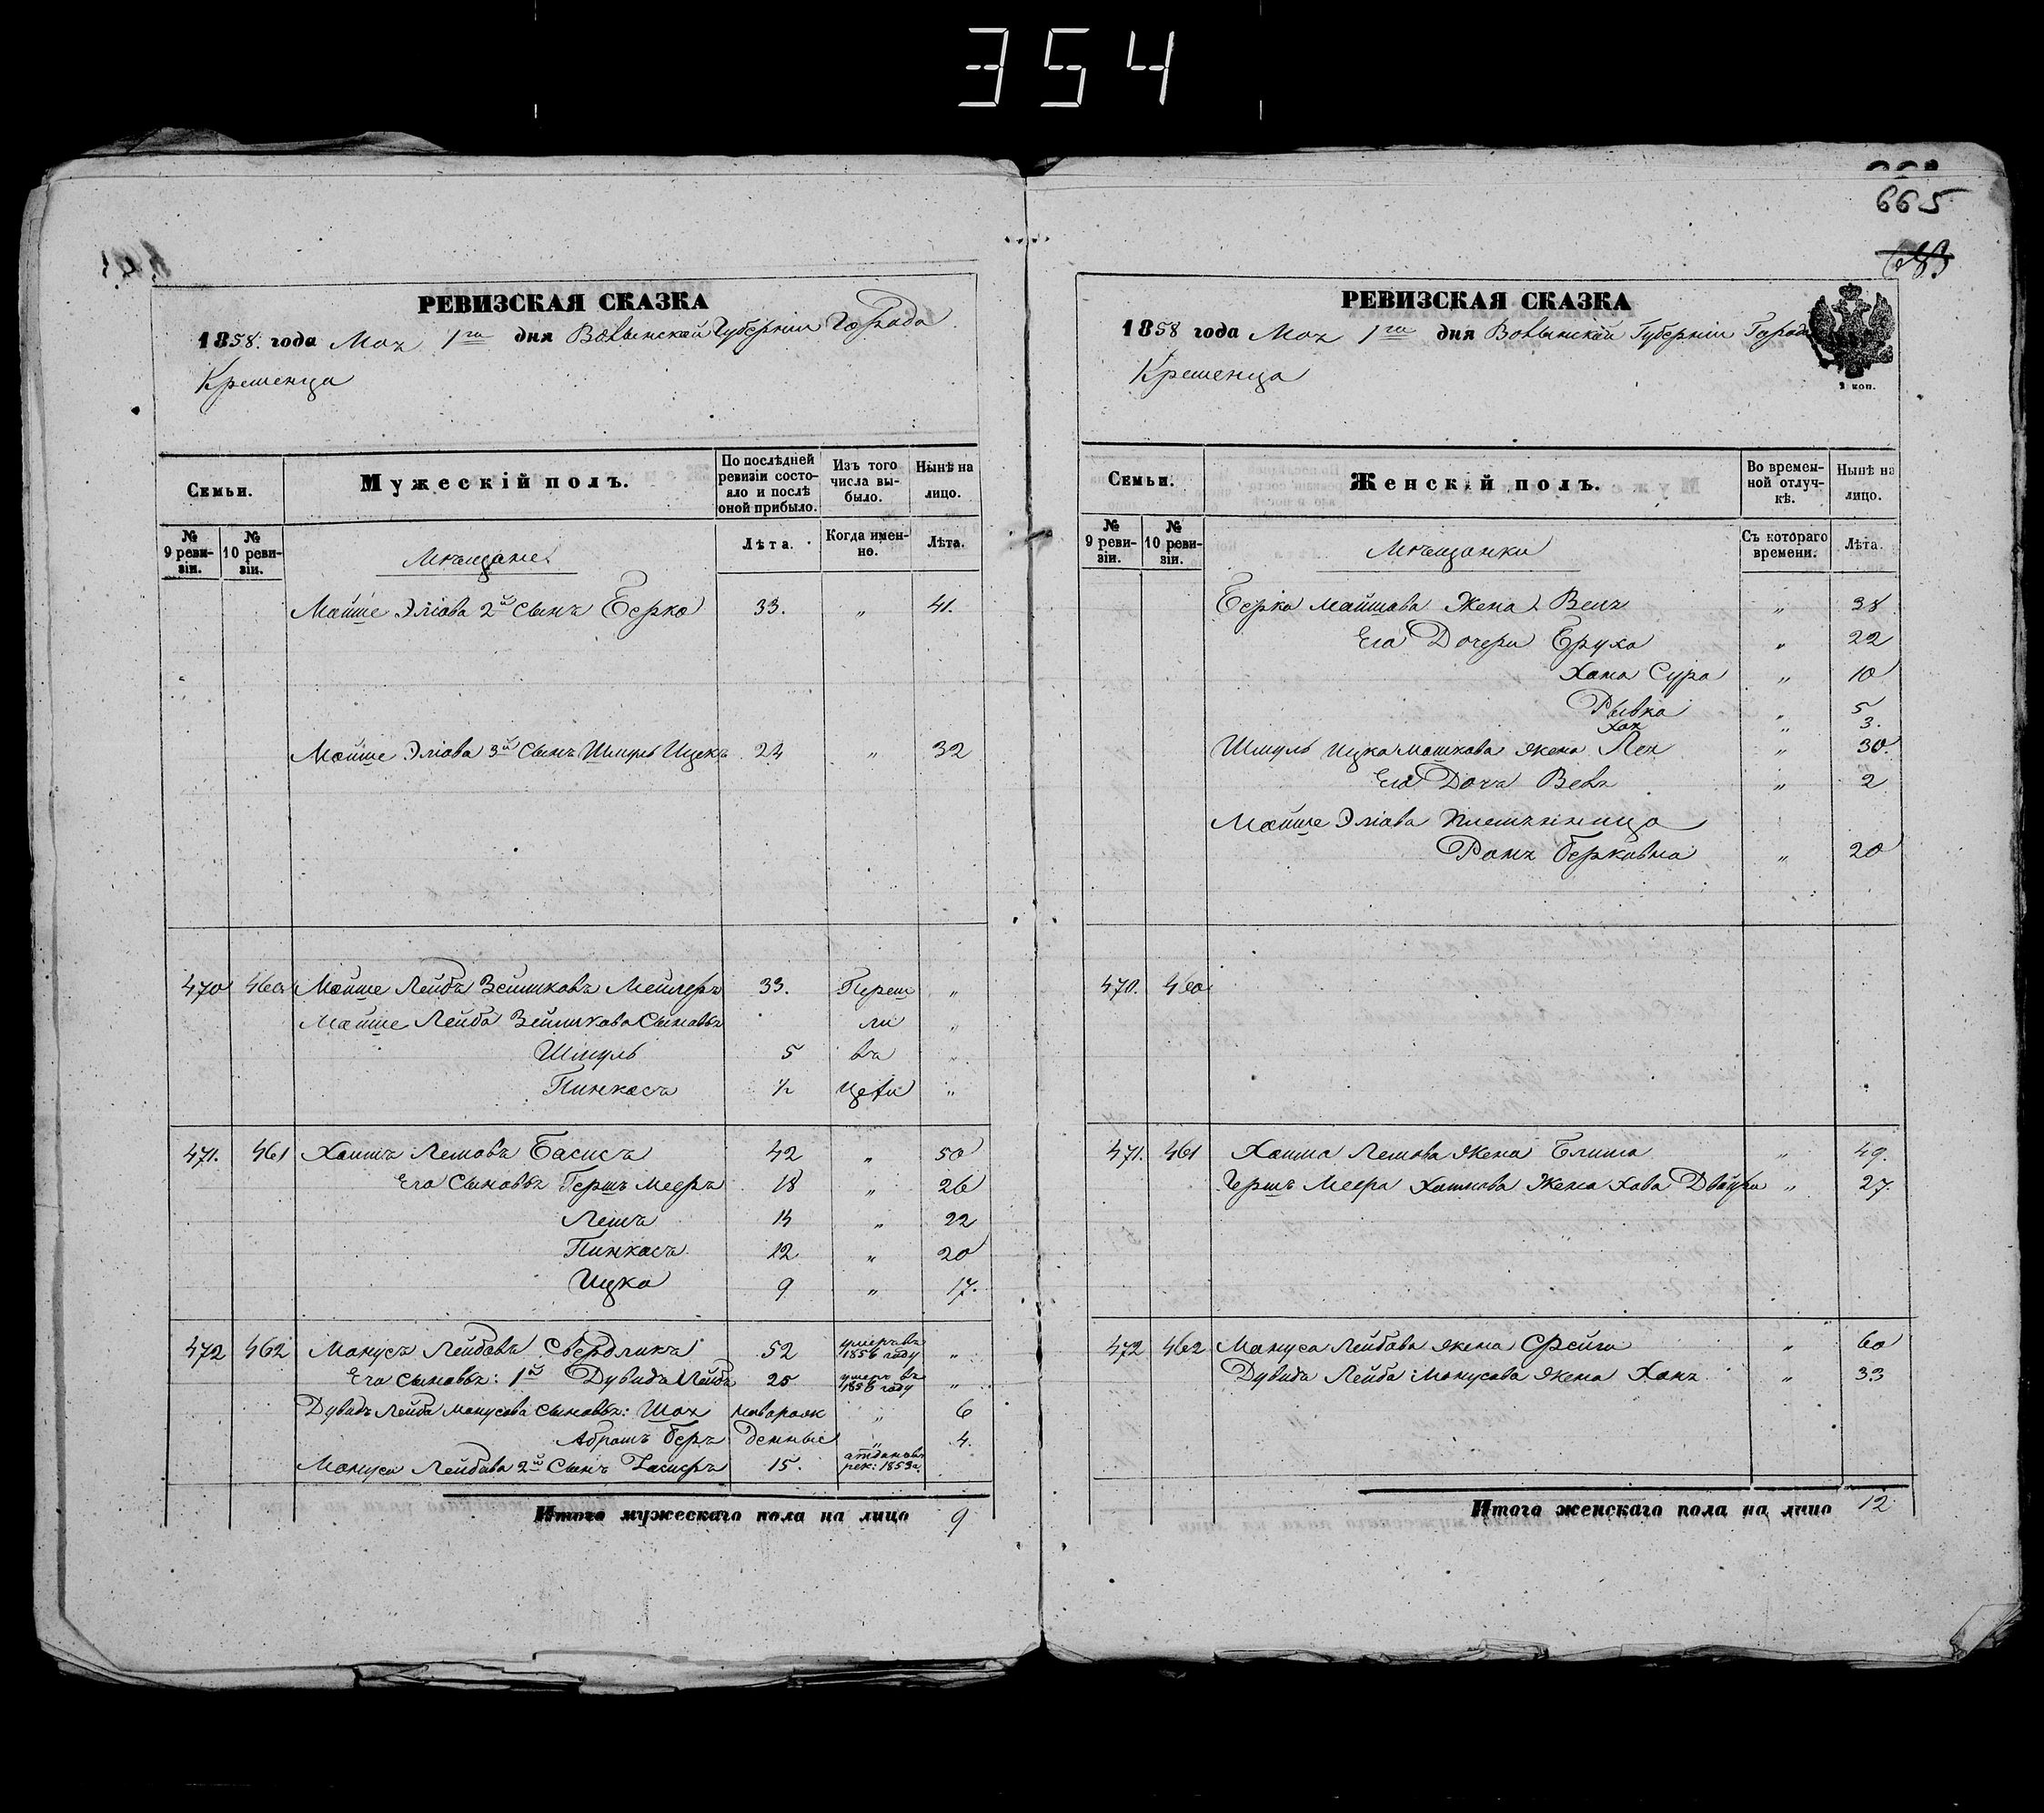 354
665
РЕВИЗСКАЯ СКАЗКА
1858. года Мая 1го дня Волынской Губерніи Города
Кременца
Семьи.
Мужескій полъ.
По послѣдней ревизіи состояло и послѣ оной прибыло.
Изъ того числа выбыло.
Нынѣ на лицо.
№ 9 ревизіи.
№ 10 ревизіи.
Мѣщане
Лѣта.
Когда именно.
Лѣта.
Мойше Эліова 2й Сынъ Берко 33. " 41.
Мойше Эліова 3й Сынъ Шмуль Ицекъ 24 " 32
470 460 Мойше Лейбъ Зейликовъ Мейлеръ 33. Переш "
Мойше Лейба Зейликова Сыновья ли "
Шмуль 5 въ "
Пинкасъ ½ Цехи "
471. 461 Хаимъ Лемовъ Басисъ 42 " 50
Его Сыновья Гершъ Мееръ 18 " 26
Лемъ 14 " 22
Пинкасъ 12 " 20
Ицко 9 " 17.
472 462 Манусъ Лейбовъ Свердликъ 52 умеръ въ 1856 году "
Его Сыновья: 1й Дувидъ Лейба 25 умеръ въ 1856 году "
Дувидъ Лейба Манусова Сыновья: Шая новорож " 6
Абрамъ Беръ денные " 4.
Мануса Лейбова 2й Сынъ 15. отданъ въ рек: 1853г.
Итого мужескаго пола на лицо 9
РЕВИЗСКАЯ СКАЗКА
1858 года Мая 1го дня Волынской Губерніи Города
Кременца
2 коп.
Семьи.
Женскій полъ.
Во временной отлучкѣ.
Нынѣ на лицо.
№ 9 ревизіи.
№ 10 ревизіи.
Мѣщанки
Съ котораго времени.
Лѣта.
Берко Мойшова Жена Беля " 38
Его Дочери Бруха " 22
Хана Сура " 10
Рывка " 5
Хая 3.
Шмуль Ицка Мошкова жена Лея " 30.
Его Дочь " 2
Мойше Эліова племянница
Берковна " 20
470. 460
471. 461 Хаима Лемова жена Блима " 49.
Гершъ Меера Хаимова Жена Хава Двойра " 27.
472 462 Мануса Лейбова жена Фрейга " 60
Дувидъ Лейба Манусова жена Хана " 33
Итого женскаго пола на лицо 12